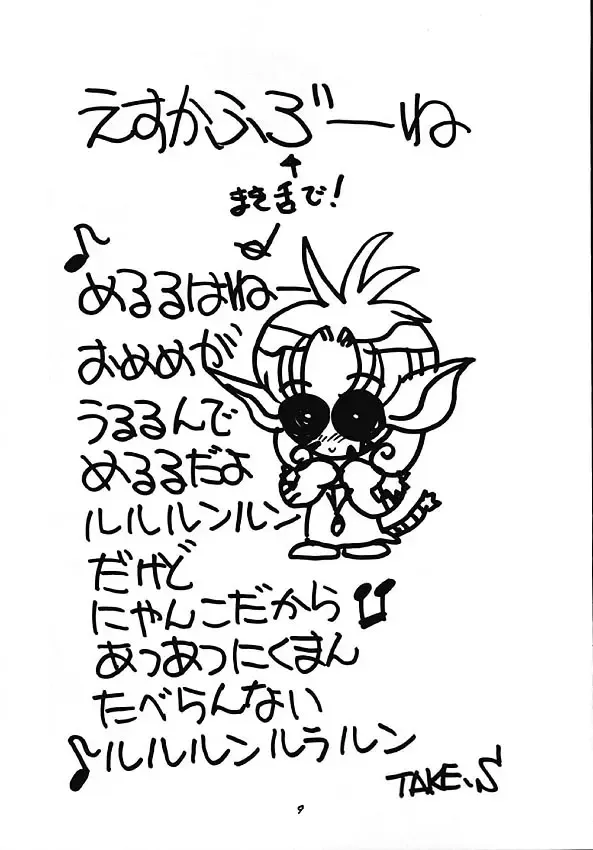 えすかふろ゛ーね
↑
まき舌で!
♪
めるるはねー
おめめが
うるるんで
めるるだよ
ルルルンルン
だけど
にゃんこだから
あつあつにくまん
たべらんない
♪ルルルンルラルン
TAKE.S
9